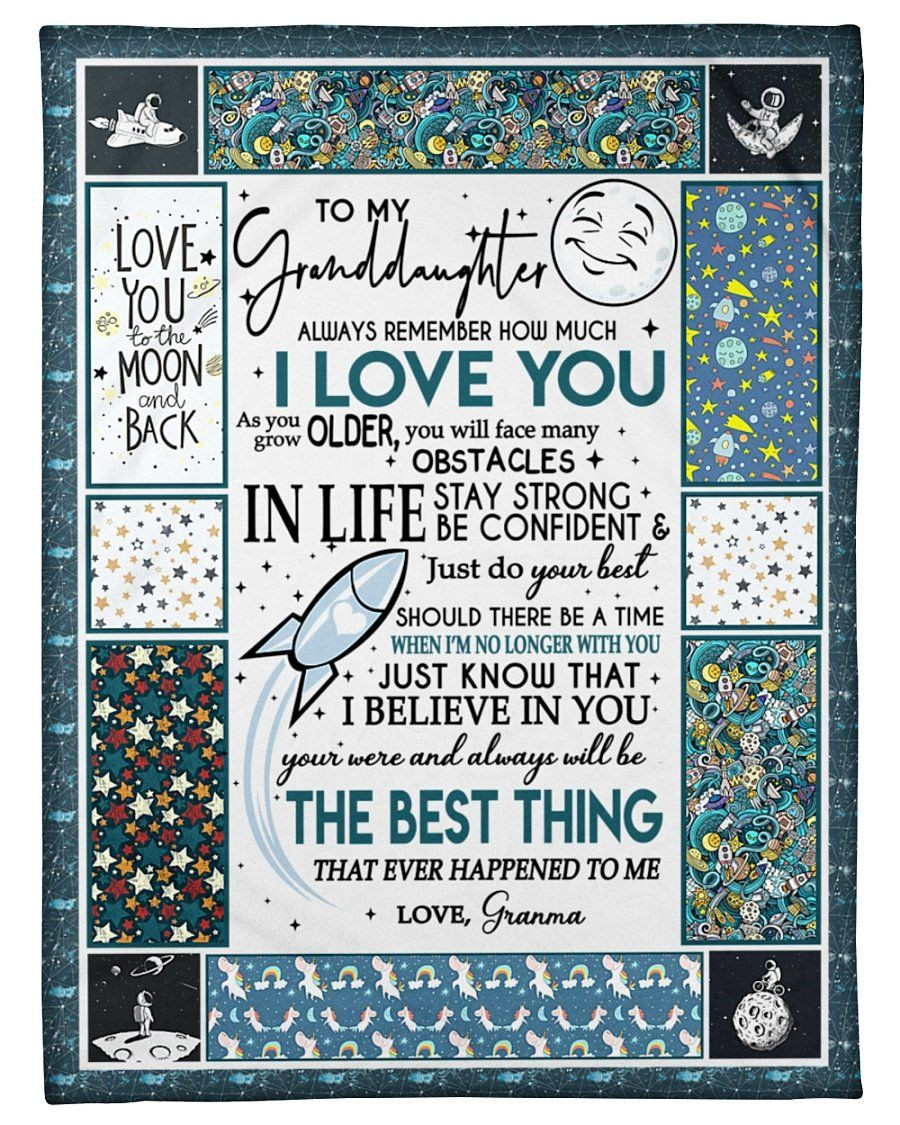 LOVE
YOU
to the
MOON
and
BACK
TO MY
Granddaughter
ALWAYS REMEMBER HOW MUCH
I LOVE YOU
As you grow OLDER, you will face many
OBSTACLES
IN LIFE STAY STRONG
BE CONFIDENT &
Just do your best
SHOULD THERE BE A TIME
WHEN I'M NO LONGER WITH YOU
JUST KNOW THAT
I BELIEVE IN YOU
your were and always will be
THE BEST THING
THAT EVER HAPPENED TO ME
LOVE, Granma